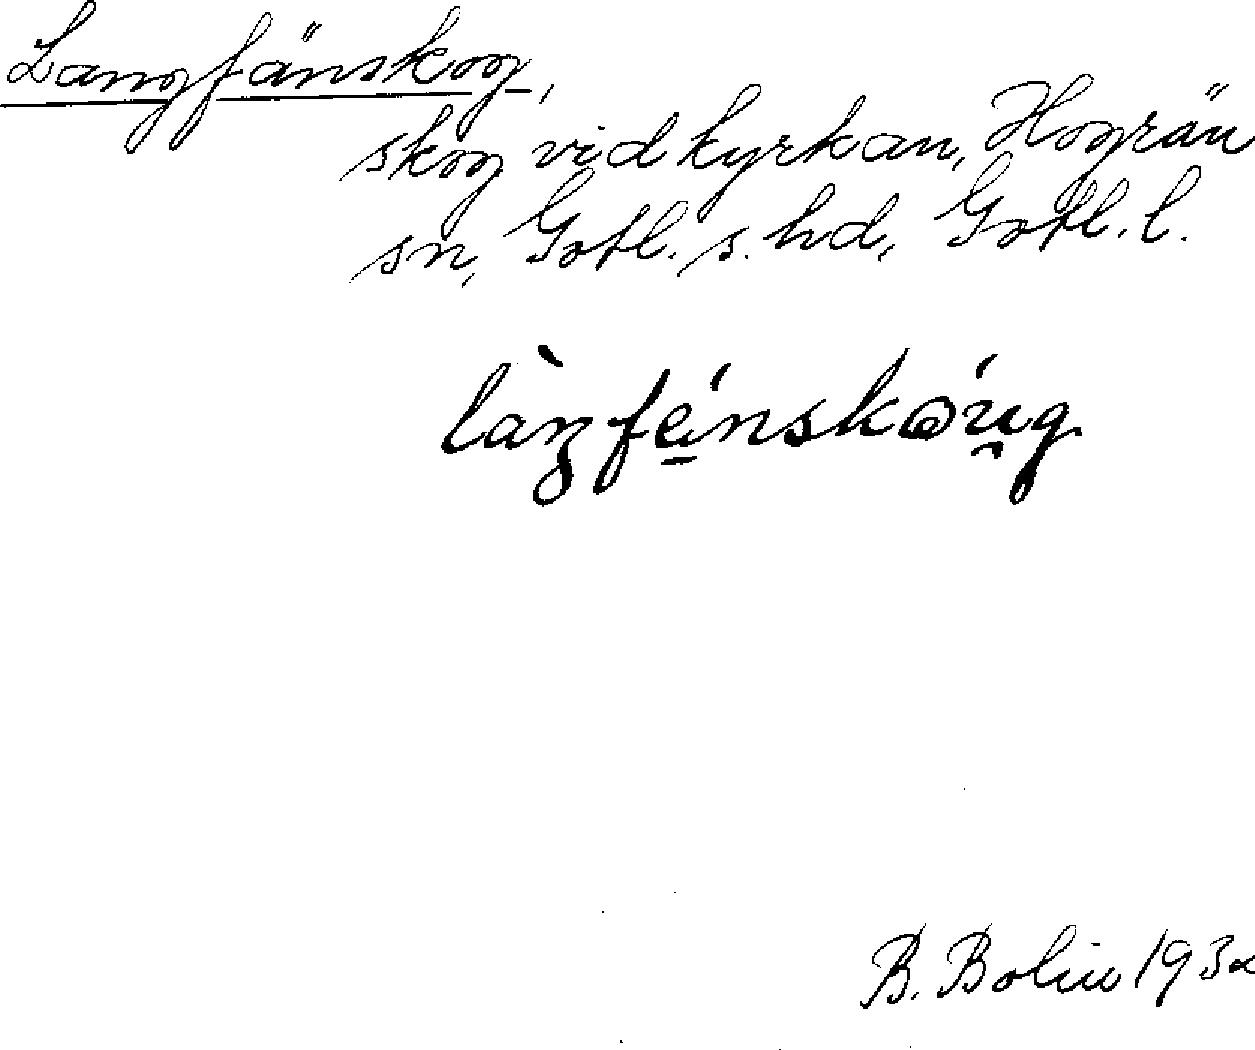 Langfänskog,
skog vid kyrkan, Hogrän
sn, Gotl. s. hd, Gotl. l.
B. Bolin 193